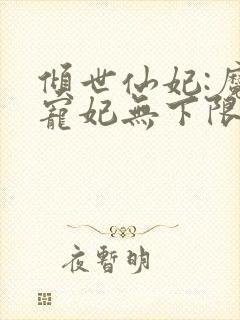 傾世仙妃:魔
寵妃無下限
夜暫明